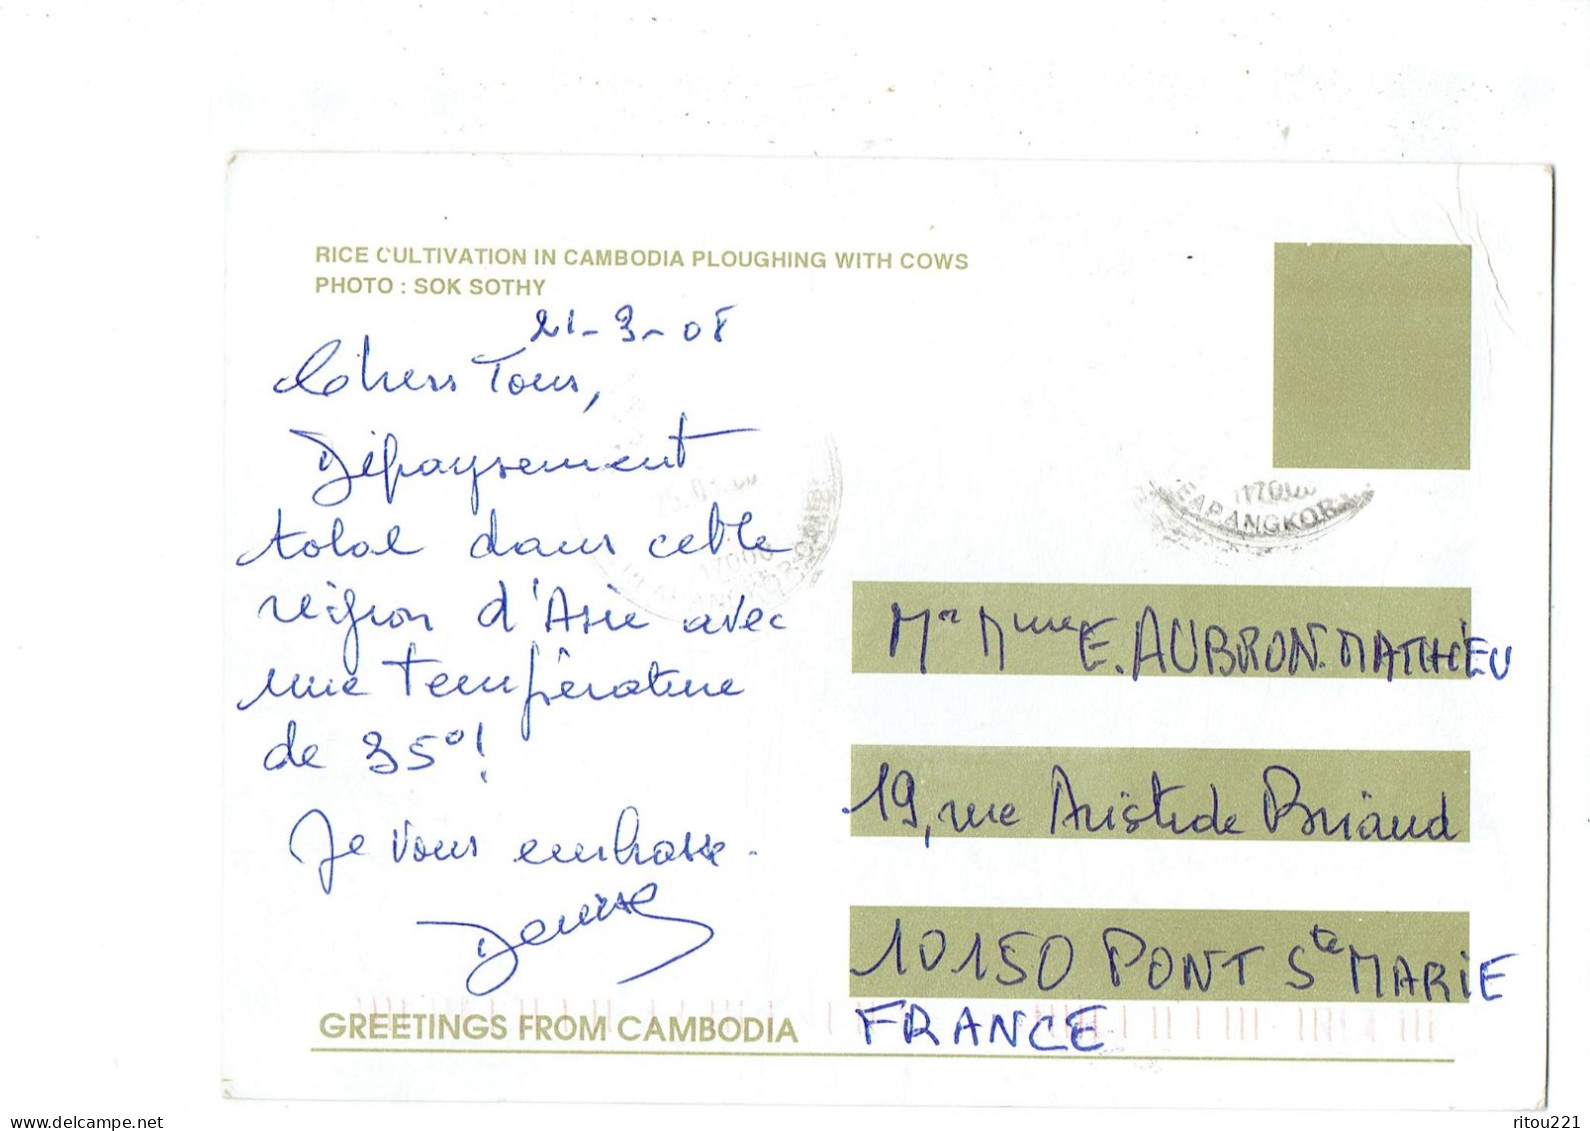 RICE CULTIVATION IN CAMBODIA PLOUGHING WITH COWS
PHOTO : SOK SOTHY
21-3-08
Chers Tous,
Dépaysement
total dans cette
région d'Asie avec
une température
de 35°!
Je vous embrasse.
Denise
GREETINGS FROM CAMBODIA
17000
ANGKOR
Mr Mme E. AUBRON.MATHIEU
19, rue Aristide Briand
10150 PONT Ste MARIE
FRANCE
www.delcampe.net
ritou221